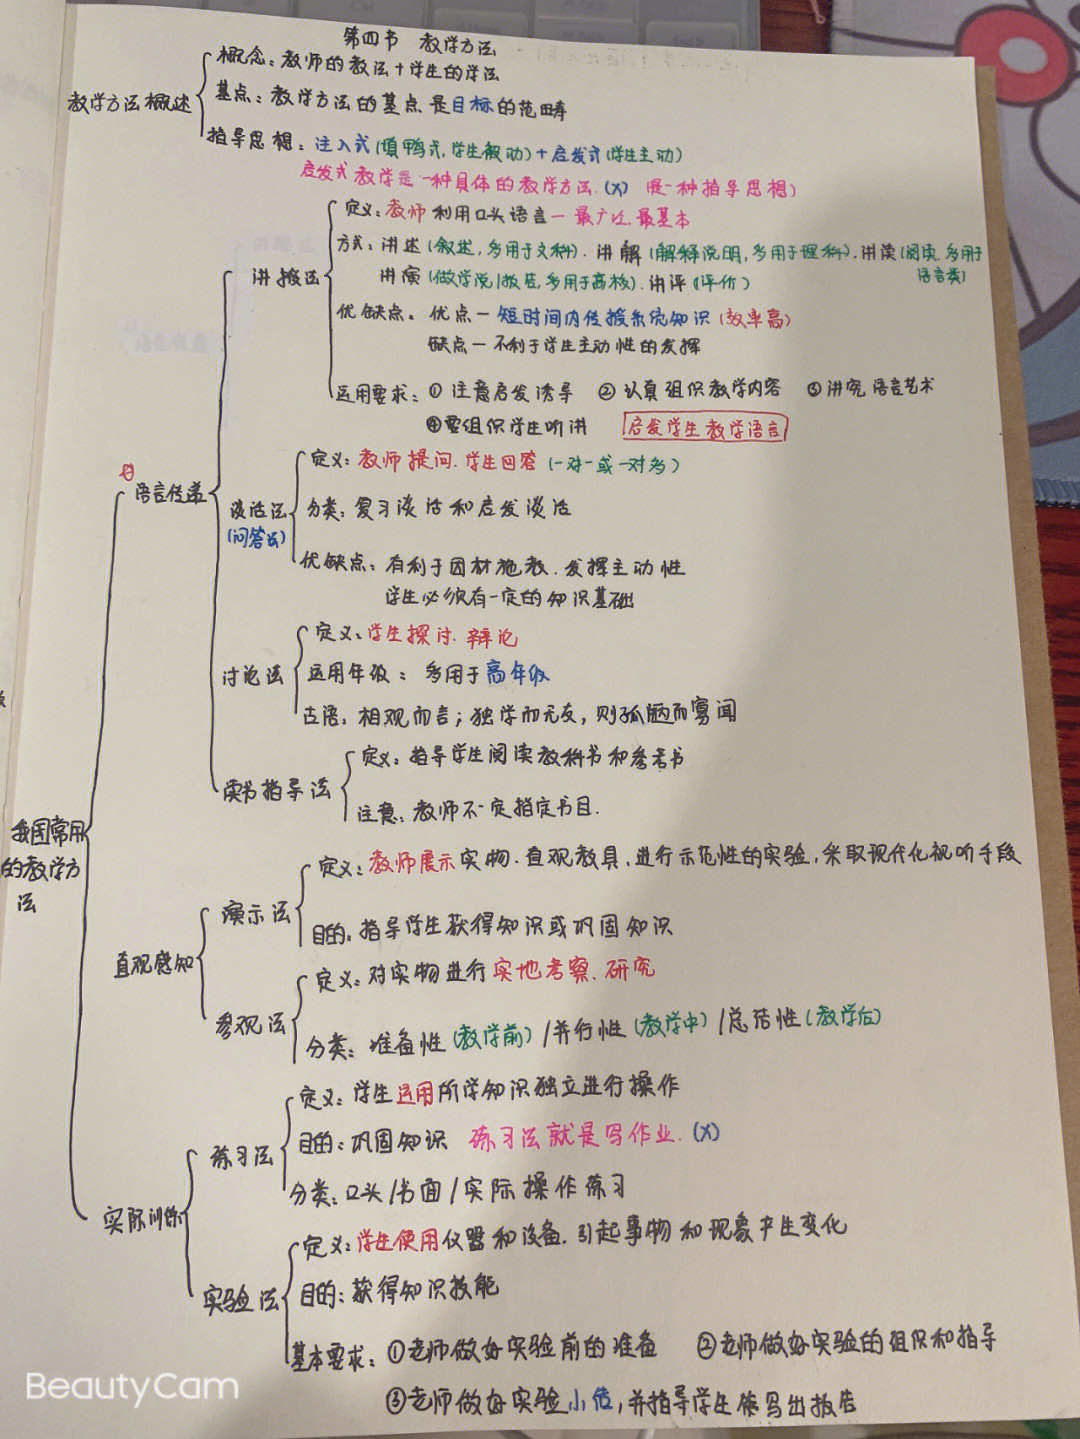 第四节 教学方法
教学方法概述
概念：教师的教法+学生的学法
基点：教学方法的基点是目标的范畴
指导思想：注入式(填鸭式,学生被动)+启发式(学生主动)
启发式教学是一种具体的教学方法.(X) (是一种指导思想)
我国常用的教学方法
语言传递
讲授法
定义：教师利用口头语言—最广泛.最基本
方式：讲述(叙述,多用于文科).讲解(解释说明,多用于理科).讲读(阅读.多用于语言类)
讲演(做学说/报告,多用于高校).讲评(评价)
优缺点。优点—短时间内传授系统知识(效率高)
缺点—不利于学生主动性的发挥
运用要求：①注意启发诱导 ②认真组织教学内容 ③讲究语言艺术
④要组织学生听讲 启发学生教学语言
谈话法
(问答法)
定义：教师提问.学生回答(一对一或一对多)
分类：复习谈话和启发谈话
优缺点：有利于因材施教.发挥主动性
学生必须有一定的知识基础
讨论法
定义：学生探讨.辩论
运用年级：多用于高年级
古语：相观而言；独学而无友，则孤陋而寡闻
读书指导法
定义：指导学生阅读教科书和参考书
注意：教师不一定指定书目.
直观感知
演示法
定义：教师展示实物.直观教具,进行示范性的实验,采取现代化视听手段
目的：指导学生获得知识或巩固知识
参观法
定义：对实物进行实地考察.研究
分类：准备性(教学前)/并行性(教学中)/总结性(教学后)
实际训练
练习法
定义：学生运用所学知识独立进行操作
目的：巩固知识 练习法就是写作业.(X)
分类：口头/书面/实际操作练习
实验法
定义：学生使用仪器和设备.引起事物和现象产生变化
目的：获得知识技能
基本要求：①老师做好实验前的准备 ②老师做好实验的组织和指导
③老师做好实验小结,并指导学生练写出报告
BeautyCam